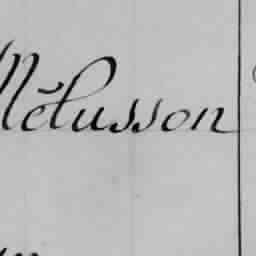 Mélusson